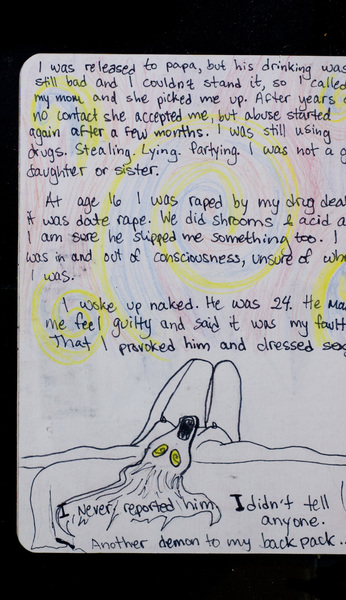 I was released to papa, but his drinking was
still bad and I couldnt stand it, so I called
my mom and she picked me up. After years o
no contact she accepted me, but abuse started
again after a few months. I was still using
drugs. Stealing. Lying. Partying. I was not a g
daughter or sister.
At age 16 I was raped by my drug deal
it was date rape. We did shrooms & acid a
I am sure he slipped me something too. I
was in and out of consciousness, unsure of wh
I was.
I woke up naked. He was 24. He ma
me feel guilty and said it was my fault
That I provoked him and dressed sex
I never reported him
I didn't tell
anyone.
Another demon to my backpack...